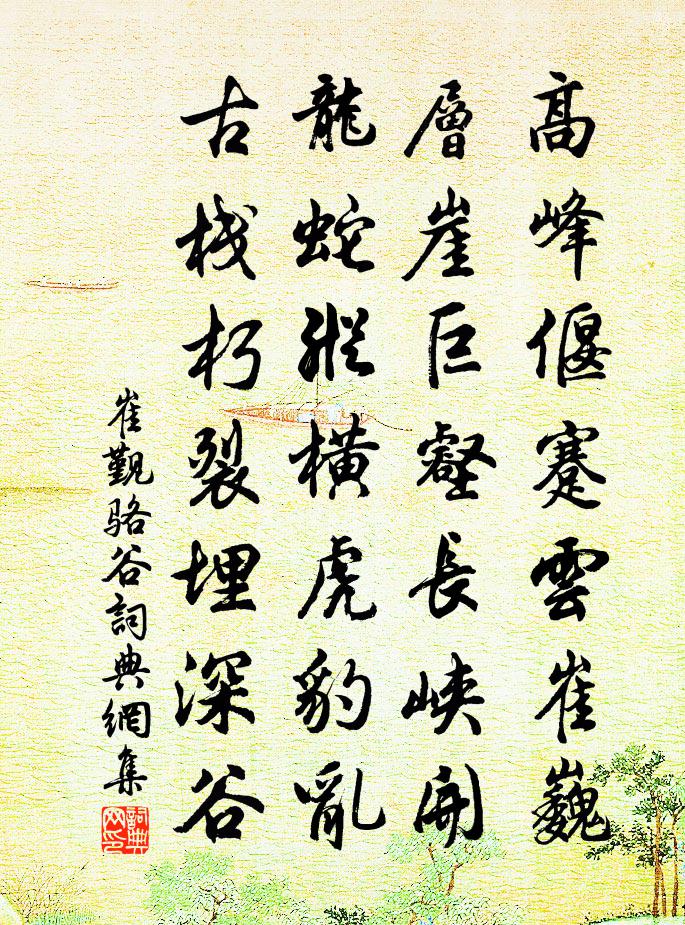 高峰偃蹇雲崔巍
層崖巨壑長峽開
龍蛇縱橫虎豹亂
古栈朽裂埋深谷
崔觐骆谷詞典網集
詞典网印